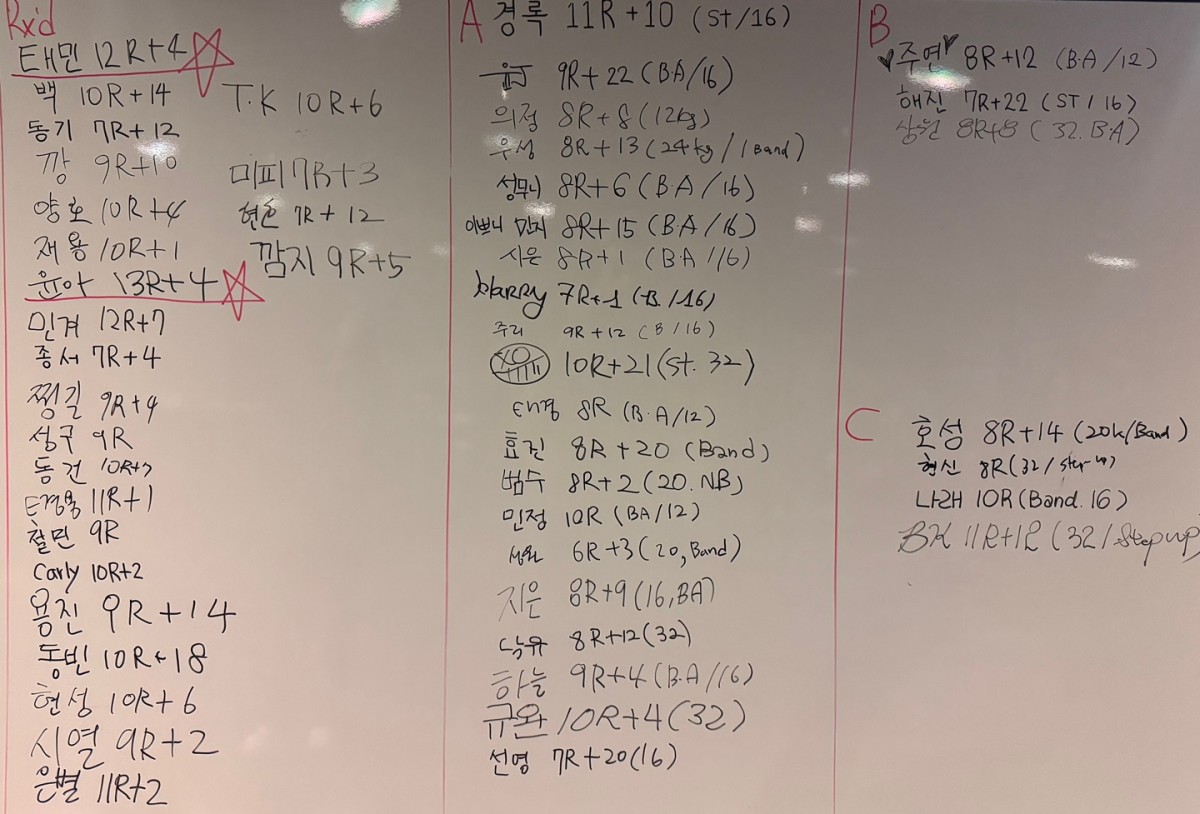 Rx'd
태민 12R+4
백 10R+14
동기 7R+12
깡 9R+10
양호 10R+4
재용 10R+1
윤아 13R+4
민겨 12R+7
종서 7R+4
찡길 9R+4
성구 9R
동건 10R+7
E경용 11R+1
철민 9R
Carly 10R+2
용진 9R+14
동빈 10R+18
현성 10R+6
시열 9R+2
은별 11R+2
T.K 10R+6
미피 7R+3
현순 7R+12
깜지 9R+5
A 경록 11R+10 (ST/16)
9R+22 (B.A/16)
의정 8R+8 (12kg)
우성 8R+13 (24kg/1Band)
성무니 8R+6 (B.A/16)
이쁘니 민지 8R+15 (B.A/16)
시은 8R+1 (B.A/16)
Harry 7R+1 (B/16)
주리 9R+12 (B/16)
10R+21 (St. 32)
8R (B.A/12)
효진 8R+20 (Band)
범수 8R+2 (20.NB)
민정 10R (BA/12)
6R+3 (20, Band)
지은 8R+9 (16, BA)
8R+12 (32)
하늘 9R+4 (B.A/16)
규완 10R+4 (32)
선영 7R+20 (16)
B
주연 8R+12 (B.A/12)
해진 7R+22 (ST/16)
상원 8R+8 (32.B.A)
C
호성 8R+14 (20k/Band)
형신 8R (32/step-up)
나래 10R (Band.16)
BK 11R+12 (32/Step up)